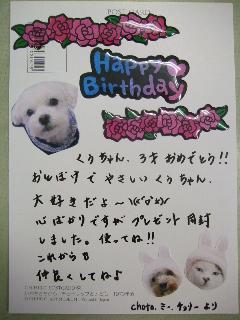 POST CARD
Happy Birthday
くぅちゃん、3才 おめでとう!!
おとぼけで やさしい くぅちゃん
大好きだよ〜
心ばかりですが プレゼント 同封
しました。使ってね!!
これからも
仲良くしてね♪
choco. ミー. チョリー より